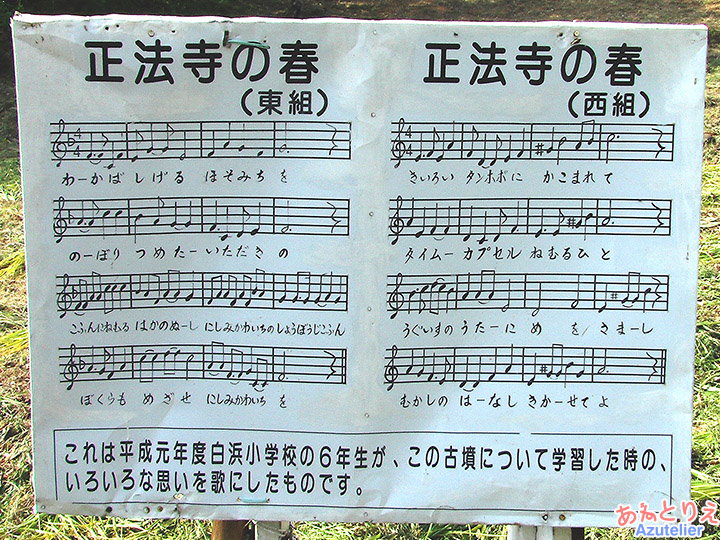 正法寺の春
(東組)
わーかば しげる ほそみち を
のーぼり つめたーいただき の
こふんにねむる はかのぬーし にしみかわいちのしょうぼうじこふん
ぼくらも めざせ にしみかわいち を
正法寺の春
(西組)
きいろい タンポポに かこまれ て
タイムー カプセル ねむるひ と
うぐいすの うたーに め を きまーし
むかしの はーなし きかーせて よ
これは平成元年度白浜小学校の6年生が、この古墳について学習した時の、
いろいろな思いを歌にしたものです。
あねとりえ
Azutelier